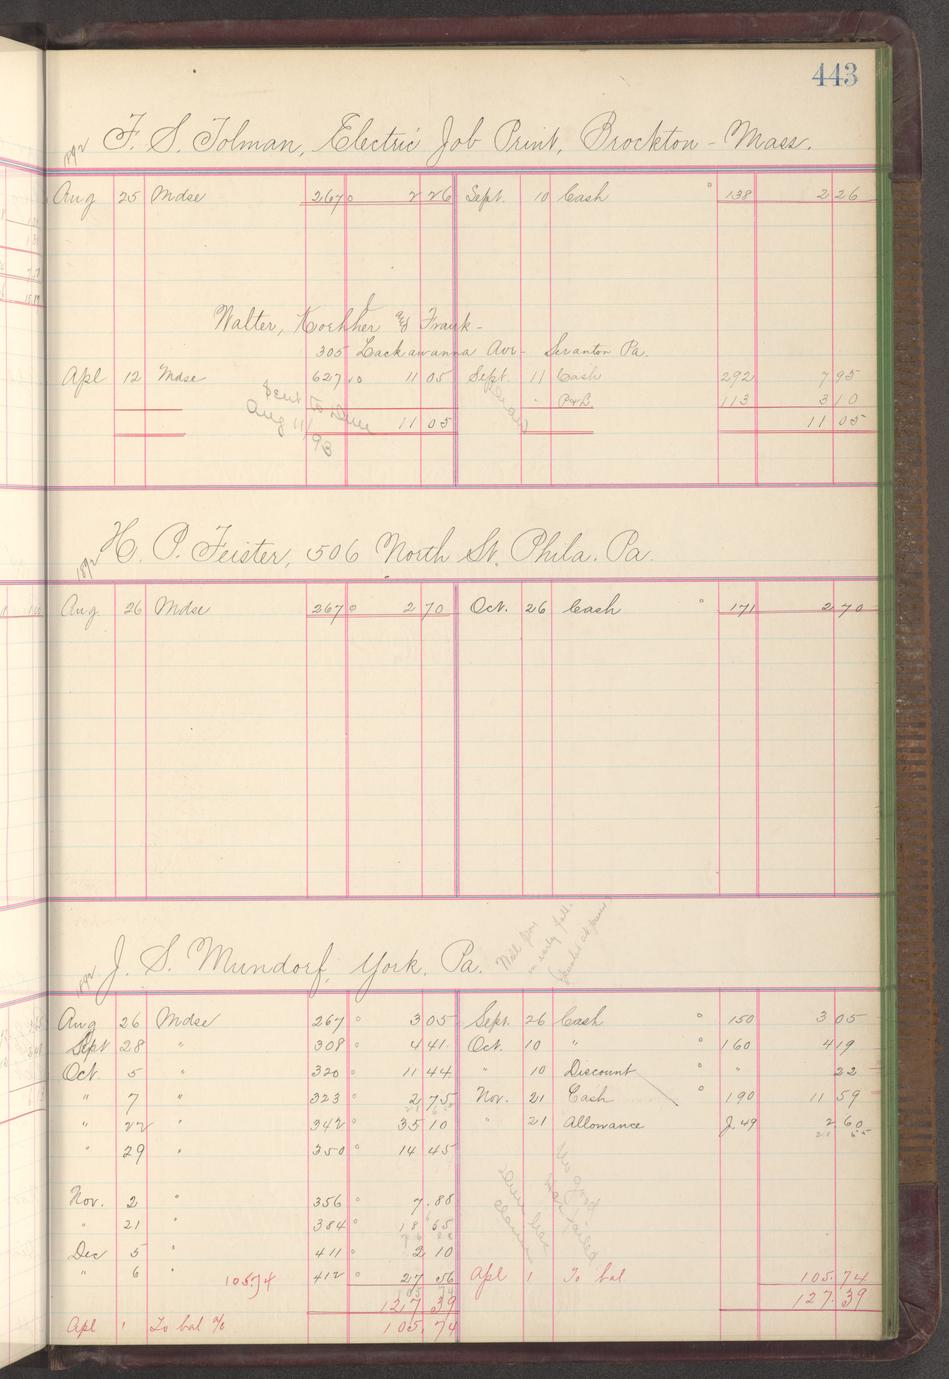 443
1892 F. S. Tolman, Electric Job Print, Brockton - Mass.
Aug 25 Mdse 267 2 26 Sept. 10 Cash 138 2 26
Walter, Koehher & Frank -
305 Lackawanna Ave - Scranton Pa.
Apl 12 Mdse 627 11 05 Sept. 11 Cash 292 7 95
" P&L 113 3 10
11 05 11 05
Sent to Dun
Aug 11/93
1892 H. P. Feister, 506 North St. Phila. Pa.
Aug 26 Mdse 267 2 70 Oct. 26 Cash 171 2 70
Will pay
in early fall.
1892 J. S. Mundorf, York, Pa.
Aug 26 Mdse 267 3 05 Sept. 26 Cash 150 3 05
Sept 28 " 308 4 41 Oct. 10 " 160 4 19
Oct. 5 " 320 11 44 " 10 Discount " 22
" 7 " 323 2 75 Nov. 21 Cash 190 11 59
" 22 " 342 35 10 " 21 Allowance J.49 2 60
" 29 " 350 14 45
Nov. 2 " 356 7.88
" 21 " 384 18 65
Dec 5 " 411 2 10
" 6 " 105.74 412 27 56 Apl 1 To bal 105.74
127 39 127.39
Apl 1 To bal a/c 105.74
no good